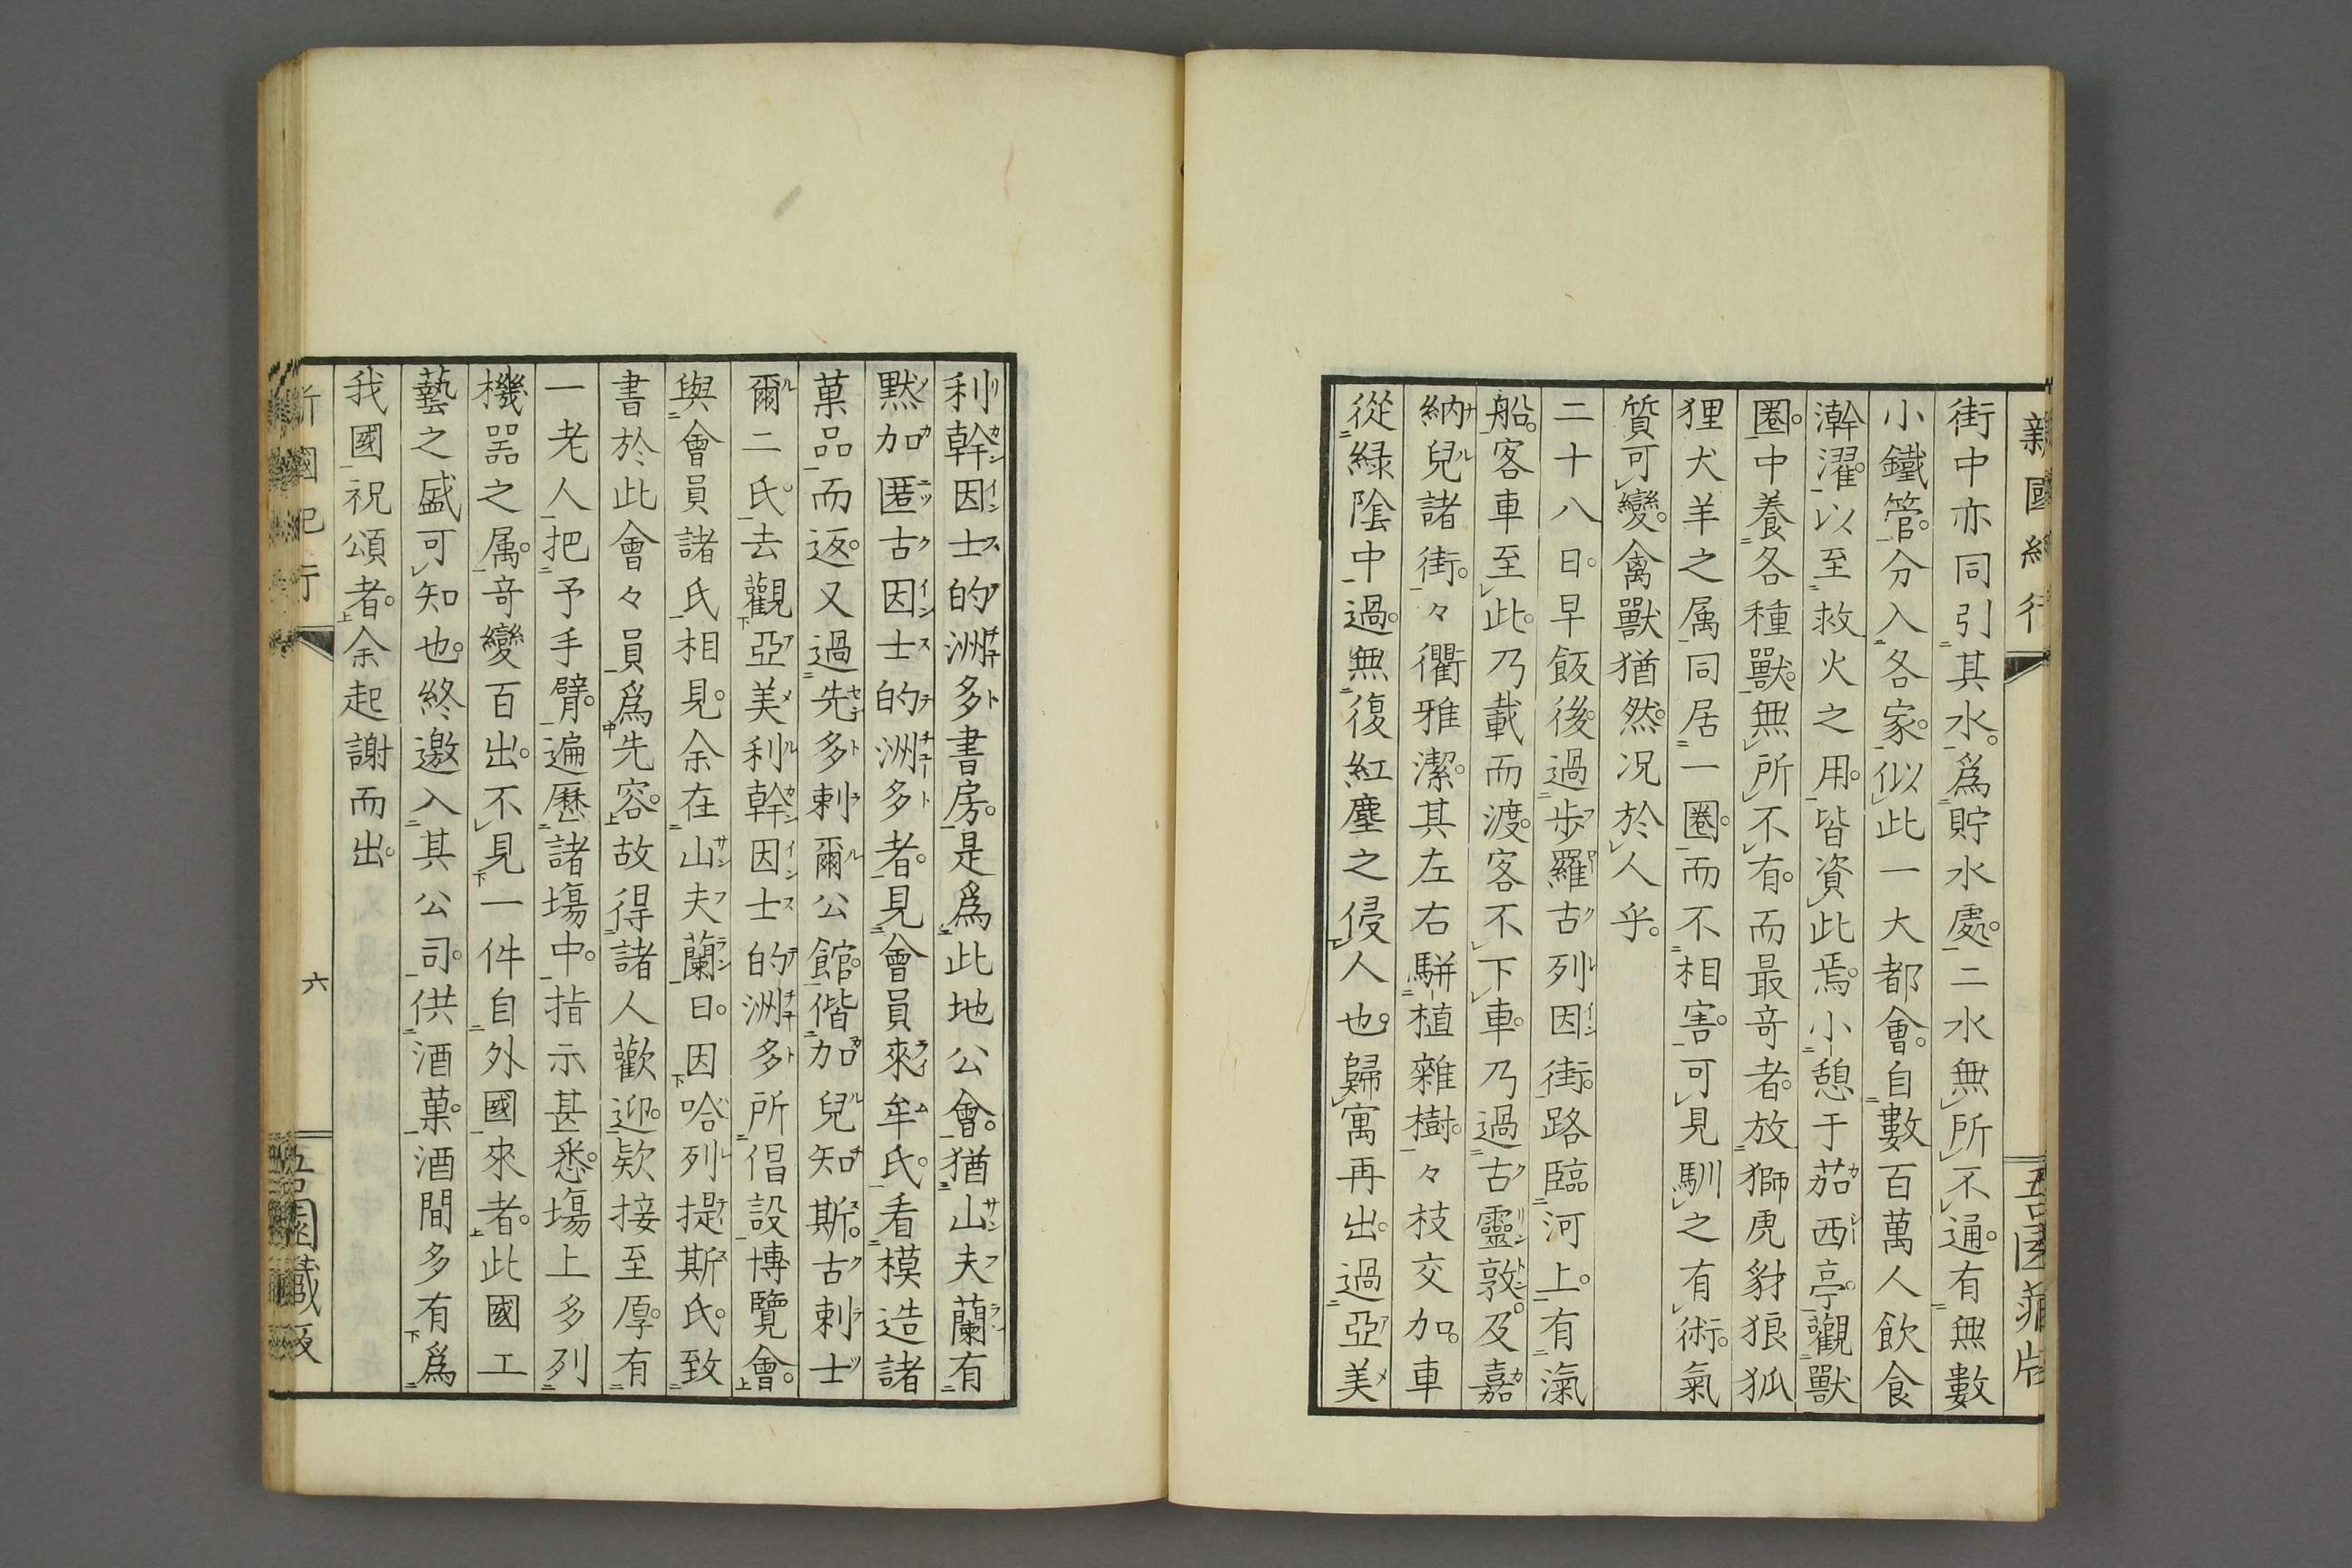 新國紀行
吾園藏版
街中亦同引其水。爲貯水處。二水無所不通。有無數
小鐵管。分入各家。似此一大都會。自數百萬人飲食
澣濯。以至救火之用。皆資此焉。小憩于茄西亭。觀獸
圈。中養各種獸。無所不有。而最竒者。放獅虎豺狼狐
狸犬羊之属同居一圈。而不相害。可見馴之有術。氣
質可變。禽獸猶然。况於人乎。
二十八日。早飯後。過歩羅古列因街。路臨河上。有滊
船。客車至此。乃載而渡。客不下車。乃過古靈敦。及嘉
納兒諸街。々衢雅潔。其左右駢植雜樹。々枝交加。車
從緑陰中過。無復紅塵之侵人也。歸寓再出。過亞美
利幹因士的洲多書房。是爲此地公會。猶山夫蘭有
黙加匿古因士的洲多者。見會員來牟氏。看模造諸
菓品而返。又過先多剌爾公館。偕加兒知斯。古剌士
爾二氏。去觀亞美利幹因士的洲多所倡設博覽會。
與會員諸氏相見。余在山夫蘭日。因哈列提斯氏。致
書於此會々員爲先容。故得諸人歡迎。欵接至厚。有
一老人把予手臂。遍歷諸塲中。指示甚悉。塲上多列
機噐之属。竒變百出。不見一件自外國來者。此國工
藝之盛可知也。終邀入其公司。供酒菓。酒間多有爲
我國祝頌者。余起謝而出。
新國紀行
六
吾園藏版